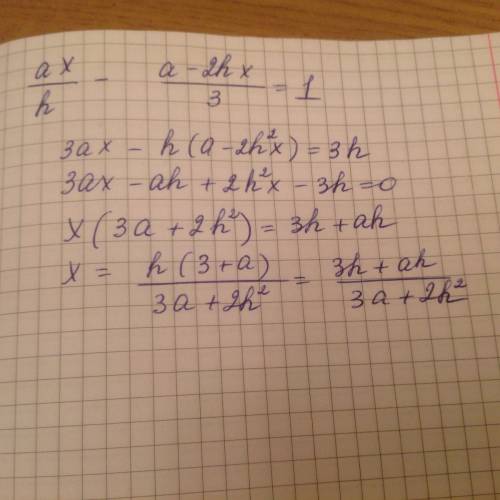 ax/h - (a - 2hx)/3 = 1
3ax - h(a - 2h²x) = 3h
3ax - ah + 2h²x - 3h = 0
x(3a + 2h²) = 3h + ah
x = h(3+a)/(3a + 2h²) = (3h + ah)/(3a + 2h²)